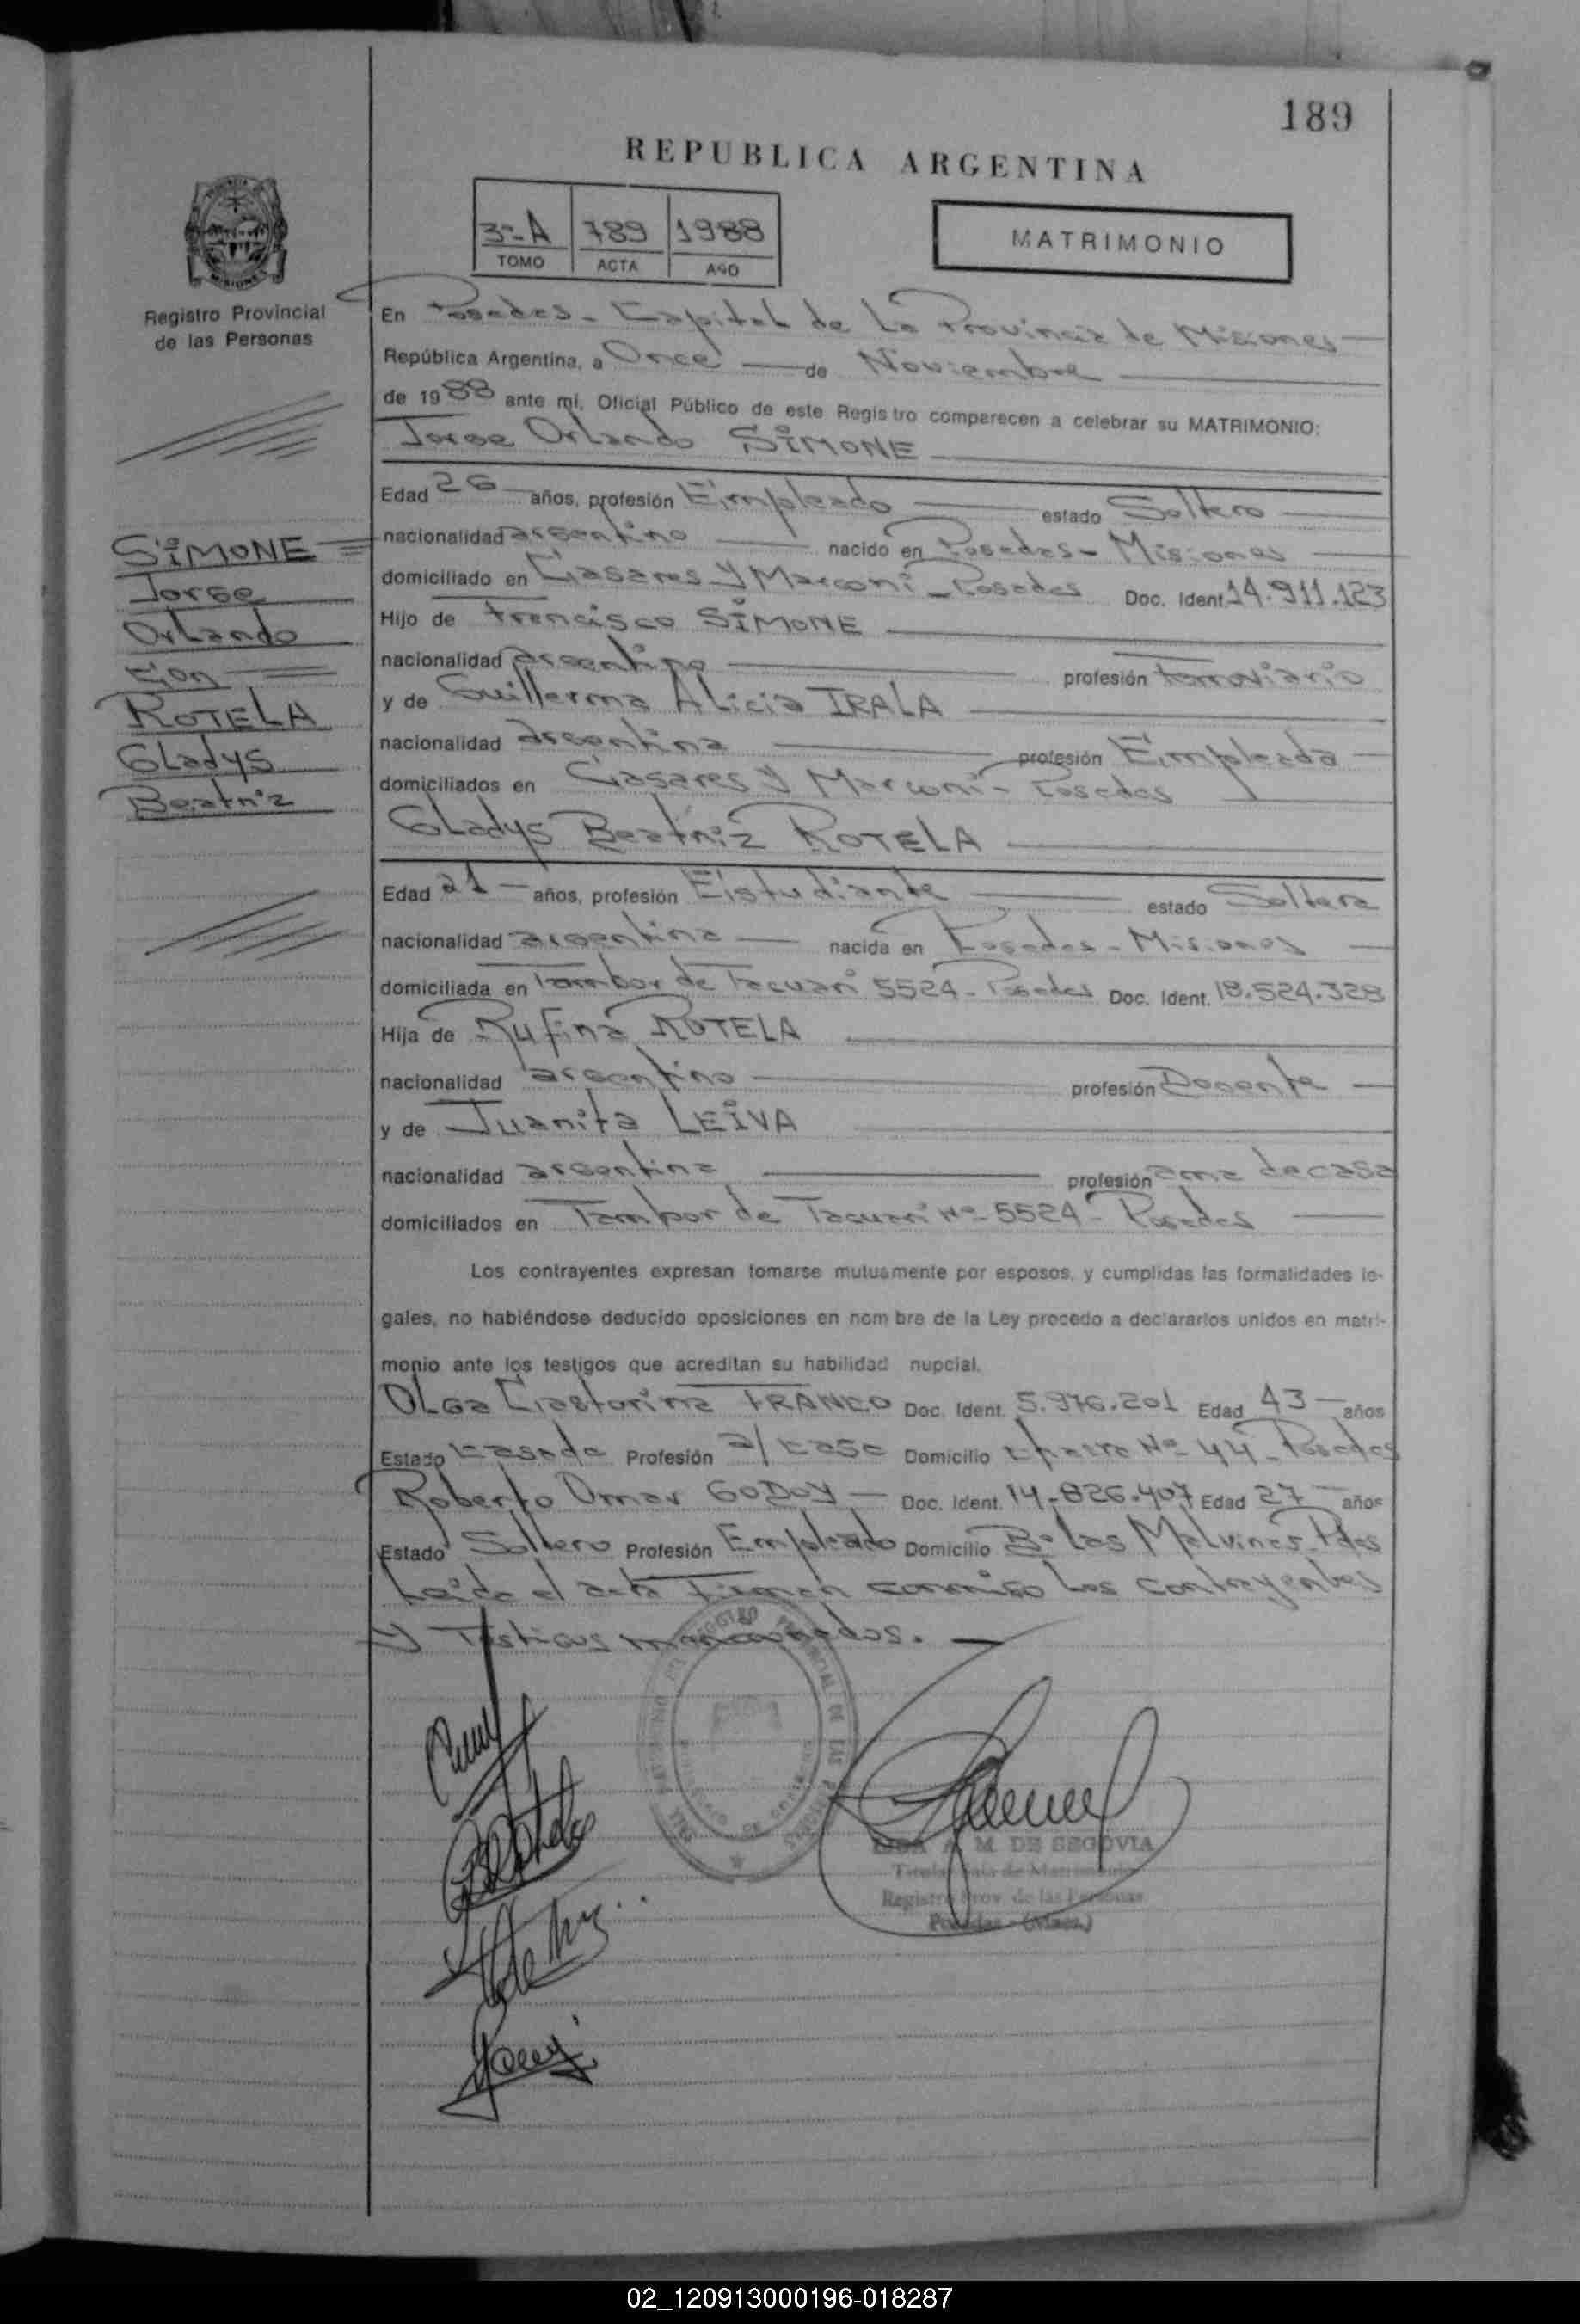 189
REPUBLICA ARGENTINA
3º-A 789 1988
TOMO ACTA AÑO
MATRIMONIO
Registro Provincial
de las Personas
En Posadas - Capital de La Provincia de Misiones
República Argentina, a Once de Noviembre
de 1988 ante mí, Oficial Público de este Registro comparecen a celebrar su MATRIMONIO:
Jorge Orlando SIMONE
Edad 26 años, profesión Empleado estado Soltero
nacionalidad argentino nacido en Posadas - Misiones
domiciliado en Casares y Marconi - Posadas Doc. Ident. 14.911.123
Hijo de Francisco SIMONE
nacionalidad argentino profesión Ferroviario
y de Guillerma Alicia IRALA
nacionalidad argentina profesión Empleada
domiciliados en Casares y Marconi - Posadas
Gladys Beatriz ROTELA
Edad 21 años, profesión Estudiante estado Soltera
nacionalidad argentina nacida en Posadas - Misiones
domiciliada en Tambor de Tacuarí 5524 - Posadas Doc. Ident. 18.524.328
Hija de Rufino ROTELA
nacionalidad argentino profesión Docente
y de Juanita LEIVA
nacionalidad argentina profesión ama de casa
domiciliados en Tambor de Tacuarí Nº 5524 - Posadas
Los contrayentes expresan tomarse mutuamente por esposos, y cumplidas las formalidades le-
gales, no habiéndose deducido oposiciones en nombre de la Ley procedo a declararlos unidos en matri-
monio ante los testigos que acreditan su habilidad nupcial.
Olga Castorina FRANCO Doc. Ident. 5.976.201 Edad 43 años
Estado Casada Profesión a/ casa Domicilio Chacra Nº 44 - Posadas
Roberto Omar GODOY Doc. Ident. 14.826.407 Edad 27 años
Estado Soltero Profesión Empleado Domicilio Bº Las Malvinas - Pdas
Leída el acta Firman conmigo Los contrayentes
y Testigos mencionados.
SIMONE
Jorge
Orlando
Con
ROTELA
Gladys
Beatriz
A. M. DE SEGOVIA
Titular Sala de Matrimonio
Registro Prov. de las Personas
Posadas - (Mnes.)
02_120913000196-018287